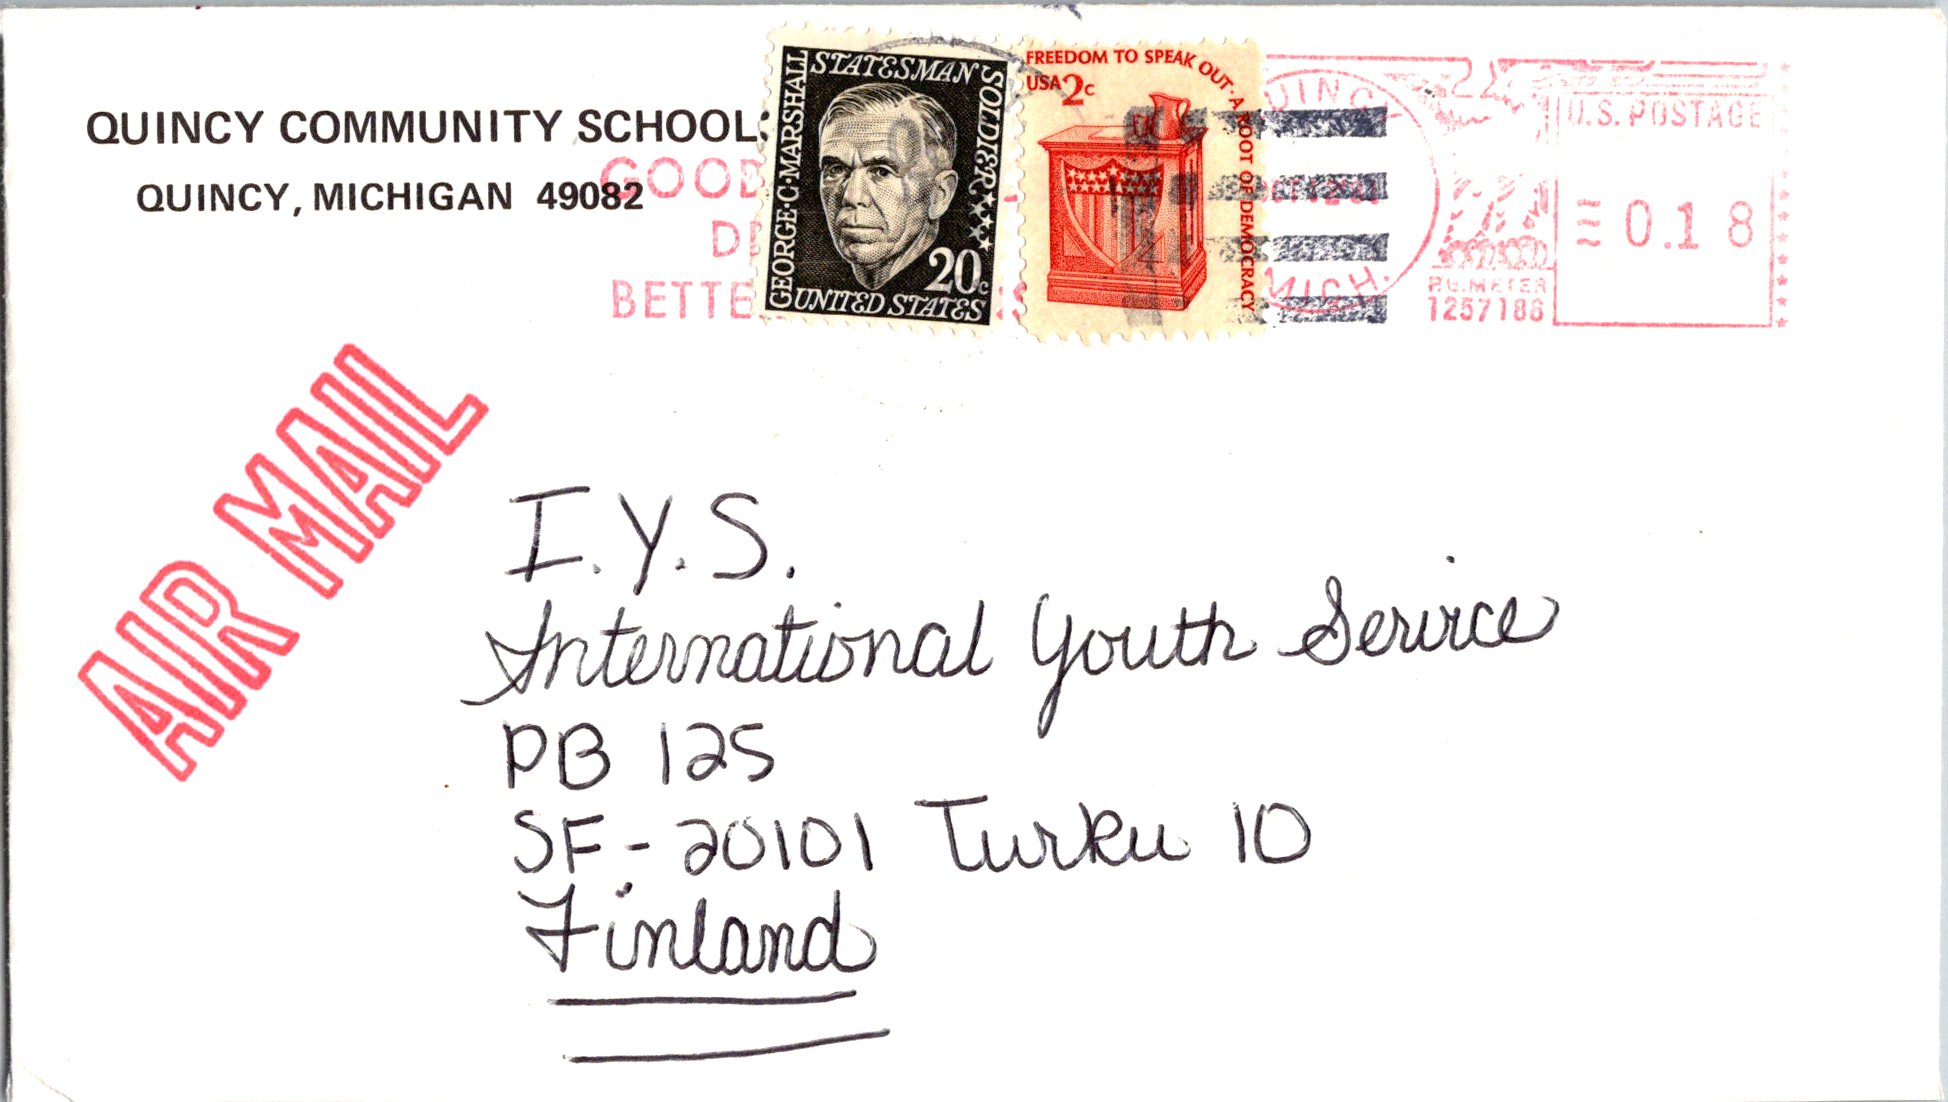 QUINCY COMMUNITY SCHOOL
QUINCY, MICHIGAN 49082
GOOD
BETTE
GEORGE·C·MARSHALL
STATESMAN
SOLDIER
20c
UNITED STATES
FREEDOM TO SPEAK OUT·A ROOT OF DEMOCRACY
USA 2c
MICH.
U.S. POSTAGE
0.18
P.B. METER
1257186
AIR MAIL
I.Y.S.
International Youth Service
PB 125
SF-20101 Turku 10
Finland